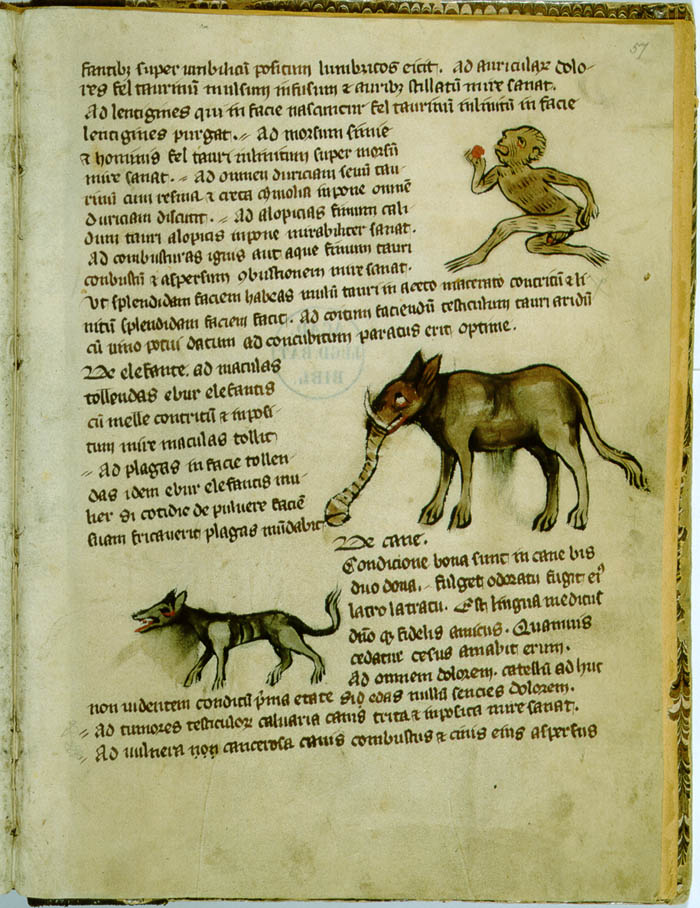 57
fantibꝫ super umbilicū positum lumbricos eicit. Ad auriculare dolo-
res fel taurinū mulsum infusum & auribꝫ stillatū mire sanat.
Ad lentigines qui in facie nascuntur fel taurinū inlinitū in facie
lentigines purgat. Ad morsum simie
& hominis fel tauri inlinitum super morsū
mire sanat. Ad omnem duriciam sevū tau-
rinū cum resina & creta cimolia inpone omnē
duriciam discutit. Ad alopicias fimum cali
dum tauri alopicis inpone mirabiliter sanat.
Ad combusturas ignis aut aque fimum tauri
conbustū & aspersum conbustionem mire sanat.
Ut splendidam faciem habeas mulū tauri in aceto macerato contritū & li
nitū splendidam faciem facit. Ad coitum faciendū testiculum tauri aridū
cū vino potui datum ad concubitum paratus erit optime.
De elefante. ad maculas
tollendas ebur elefantis
cū melle contritū & inposi-
tum mire maculas tollit
Ad plagas in facie tollen-
das idem ebur elefantis mu-
lier si cotidie de pulvere faciē
suam fricaverit plagas mūdabit
De cane.
Condicione bona sunt in cane bis
duo dona. fulget odoratu fugit
latro latratu. Est lingua medicus
dn̄o qꝫ fidelis amicus. Quamuis
cedatur cesus amabit erum.
Ad omnem dolorem. catellū ad huc
non uidentem conditū p̄ma etate si edas nullū sencies dolorem.
Ad tumores testiculorꝫ caluaria canis trita & inposita mire sanat.
Ad vulnera non cancerosa canis combustus & cinis eius aspersus
BIBL.